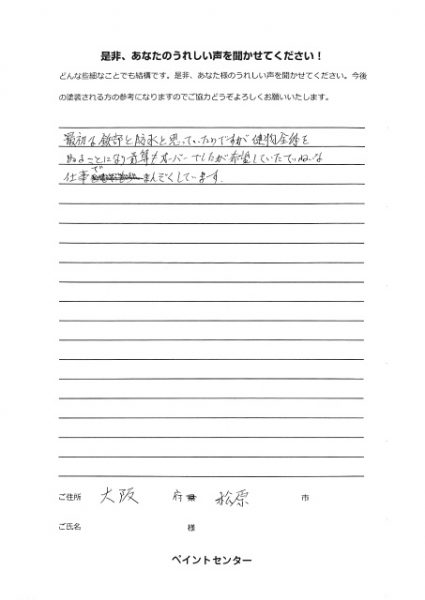 是非、あなたのうれしい声を聞かせてください！
どんな些細なことでも結構です。是非、あなた様のうれしい声を聞かせてください。今後
の塗装される方の参考になりますのでご協力どうぞよろしくお願いいたします。
最初は鉄部と防水と思っていたのですが建物全体を
ぬることになり予算もオーバーでしたが希望していたていねいな
仕事で まんぞくしています。
ご住所 大阪 府 松原 市
ご氏名 様
ペイントセンター